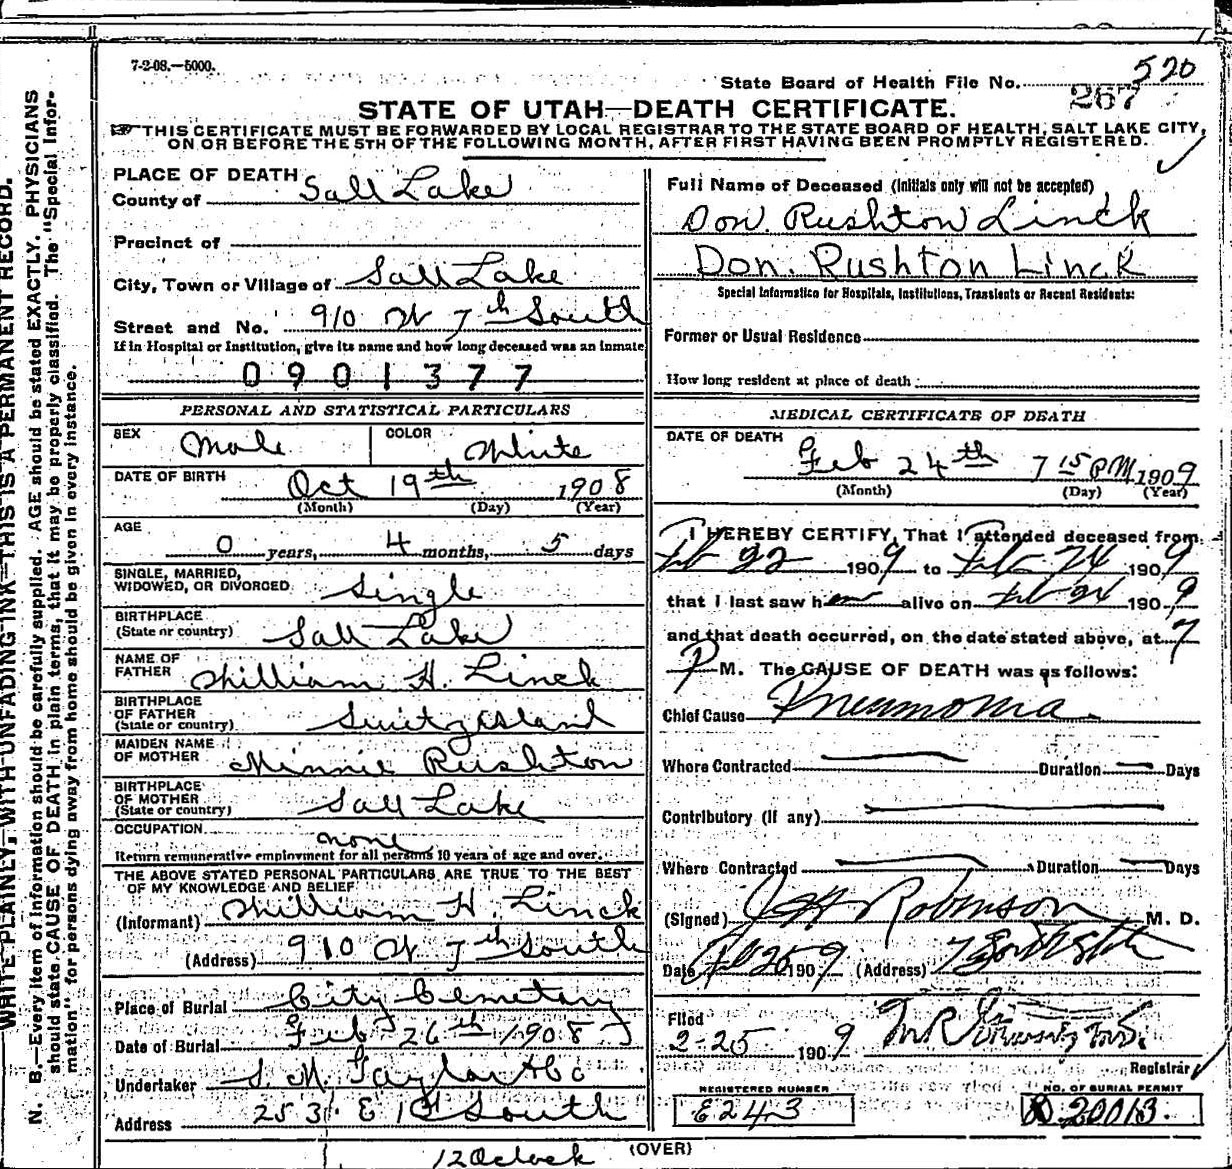 7-2-08.—5000.
State Board of Health File No. 520
267
STATE OF UTAH—DEATH CERTIFICATE.
THIS CERTIFICATE MUST BE FORWARDED BY LOCAL REGISTRAR TO THE STATE BOARD OF HEALTH, SALT LAKE CITY,
ON OR BEFORE THE 5TH OF THE FOLLOWING MONTH, AFTER FIRST HAVING BEEN PROMPTLY REGISTERED.
WRITE PLAINLY, WITH UNFADING INK—THIS IS A PERMANENT RECORD.
N. B.—Every item of information should be carefully supplied. AGE should be stated EXACTLY. PHYSICIANS
should state CAUSE OF DEATH in plain terms, that it may be properly classified. The "Special Infor-
mation" for persons dying away from home should be given in every instance.
PLACE OF DEATH
County of Salt Lake
Precinct of
City, Town or Village of Salt Lake
Street and No. 910 W 7th South
If in Hospital or Institution, give its name and how long deceased was an inmate
0901377
PERSONAL AND STATISTICAL PARTICULARS
SEX Male COLOR White
DATE OF BIRTH Oct 19th 1908
(Month) (Day) (Year)
AGE
0 years, 4 months, 5 days
SINGLE, MARRIED,
WIDOWED, OR DIVORCED Single
BIRTHPLACE
(State or country) Salt Lake
NAME OF
FATHER William H. Linck
BIRTHPLACE
OF FATHER
(State or country) Switzerland
MAIDEN NAME
OF MOTHER Minnie Rushton
BIRTHPLACE
OF MOTHER
(State or country) Salt Lake
OCCUPATION none
Return remunerative employment for all persons 10 years of age and over.
THE ABOVE STATED PERSONAL PARTICULARS ARE TRUE TO THE BEST
OF MY KNOWLEDGE AND BELIEF
(Informant) William H. Linck
(Address) 910 W 7th South
Place of Burial City Cemetery
Date of Burial Feb 26th 1908
Undertaker S. M. Taylor & Co
Address 253 E 1st South
12 Oclock
Full Name of Deceased (Initials only will not be accepted)
Don. Rushton Linck
Don. Rushton Linck
Special Information for Hospitals, Institutions, Transients or Recent Residents:
Former or Usual Residence
How long resident at place of death :
MEDICAL CERTIFICATE OF DEATH
DATE OF DEATH
Feb 24th 7 15 PM 1909
(Month) (Day) (Year)
I HEREBY CERTIFY, That I attended deceased from
Feb 22 1909 to Feb 24 1909
that I last saw him alive on Feb 24 1909
and that death occurred, on the date stated above, at 7
P M. The CAUSE OF DEATH was as follows:
Chief Cause Pneumonia
Where Contracted Duration Days
Contributory (if any)
Where Contracted Duration Days
(Signed) Robinson M. D.
Date Feb 25 1909 (Address)
Filed
2-25 1909
Registrar
REGISTERED NUMBER
E243
NO. OF BURIAL PERMIT
B 20013.
(OVER)